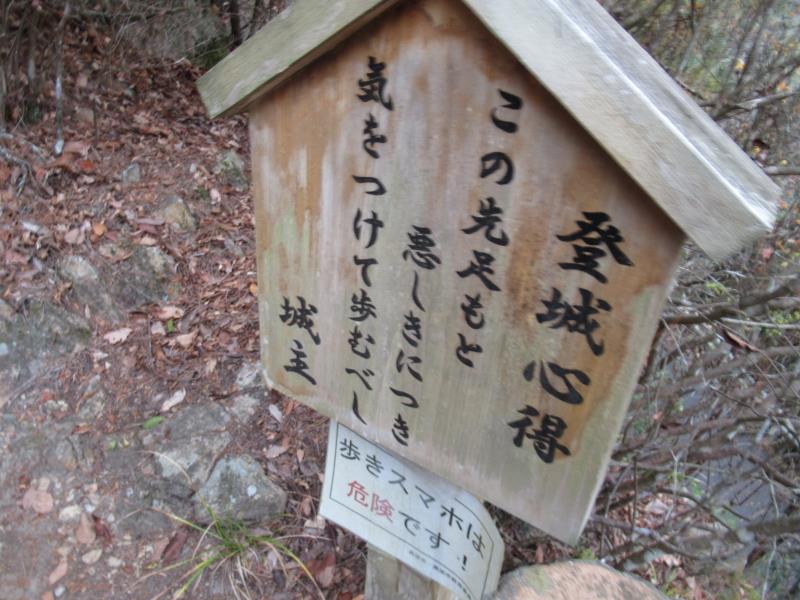 登城心得
この先足もと
悪しきにつき
気をつけて歩むべし
城主
歩きスマホは
危険です!